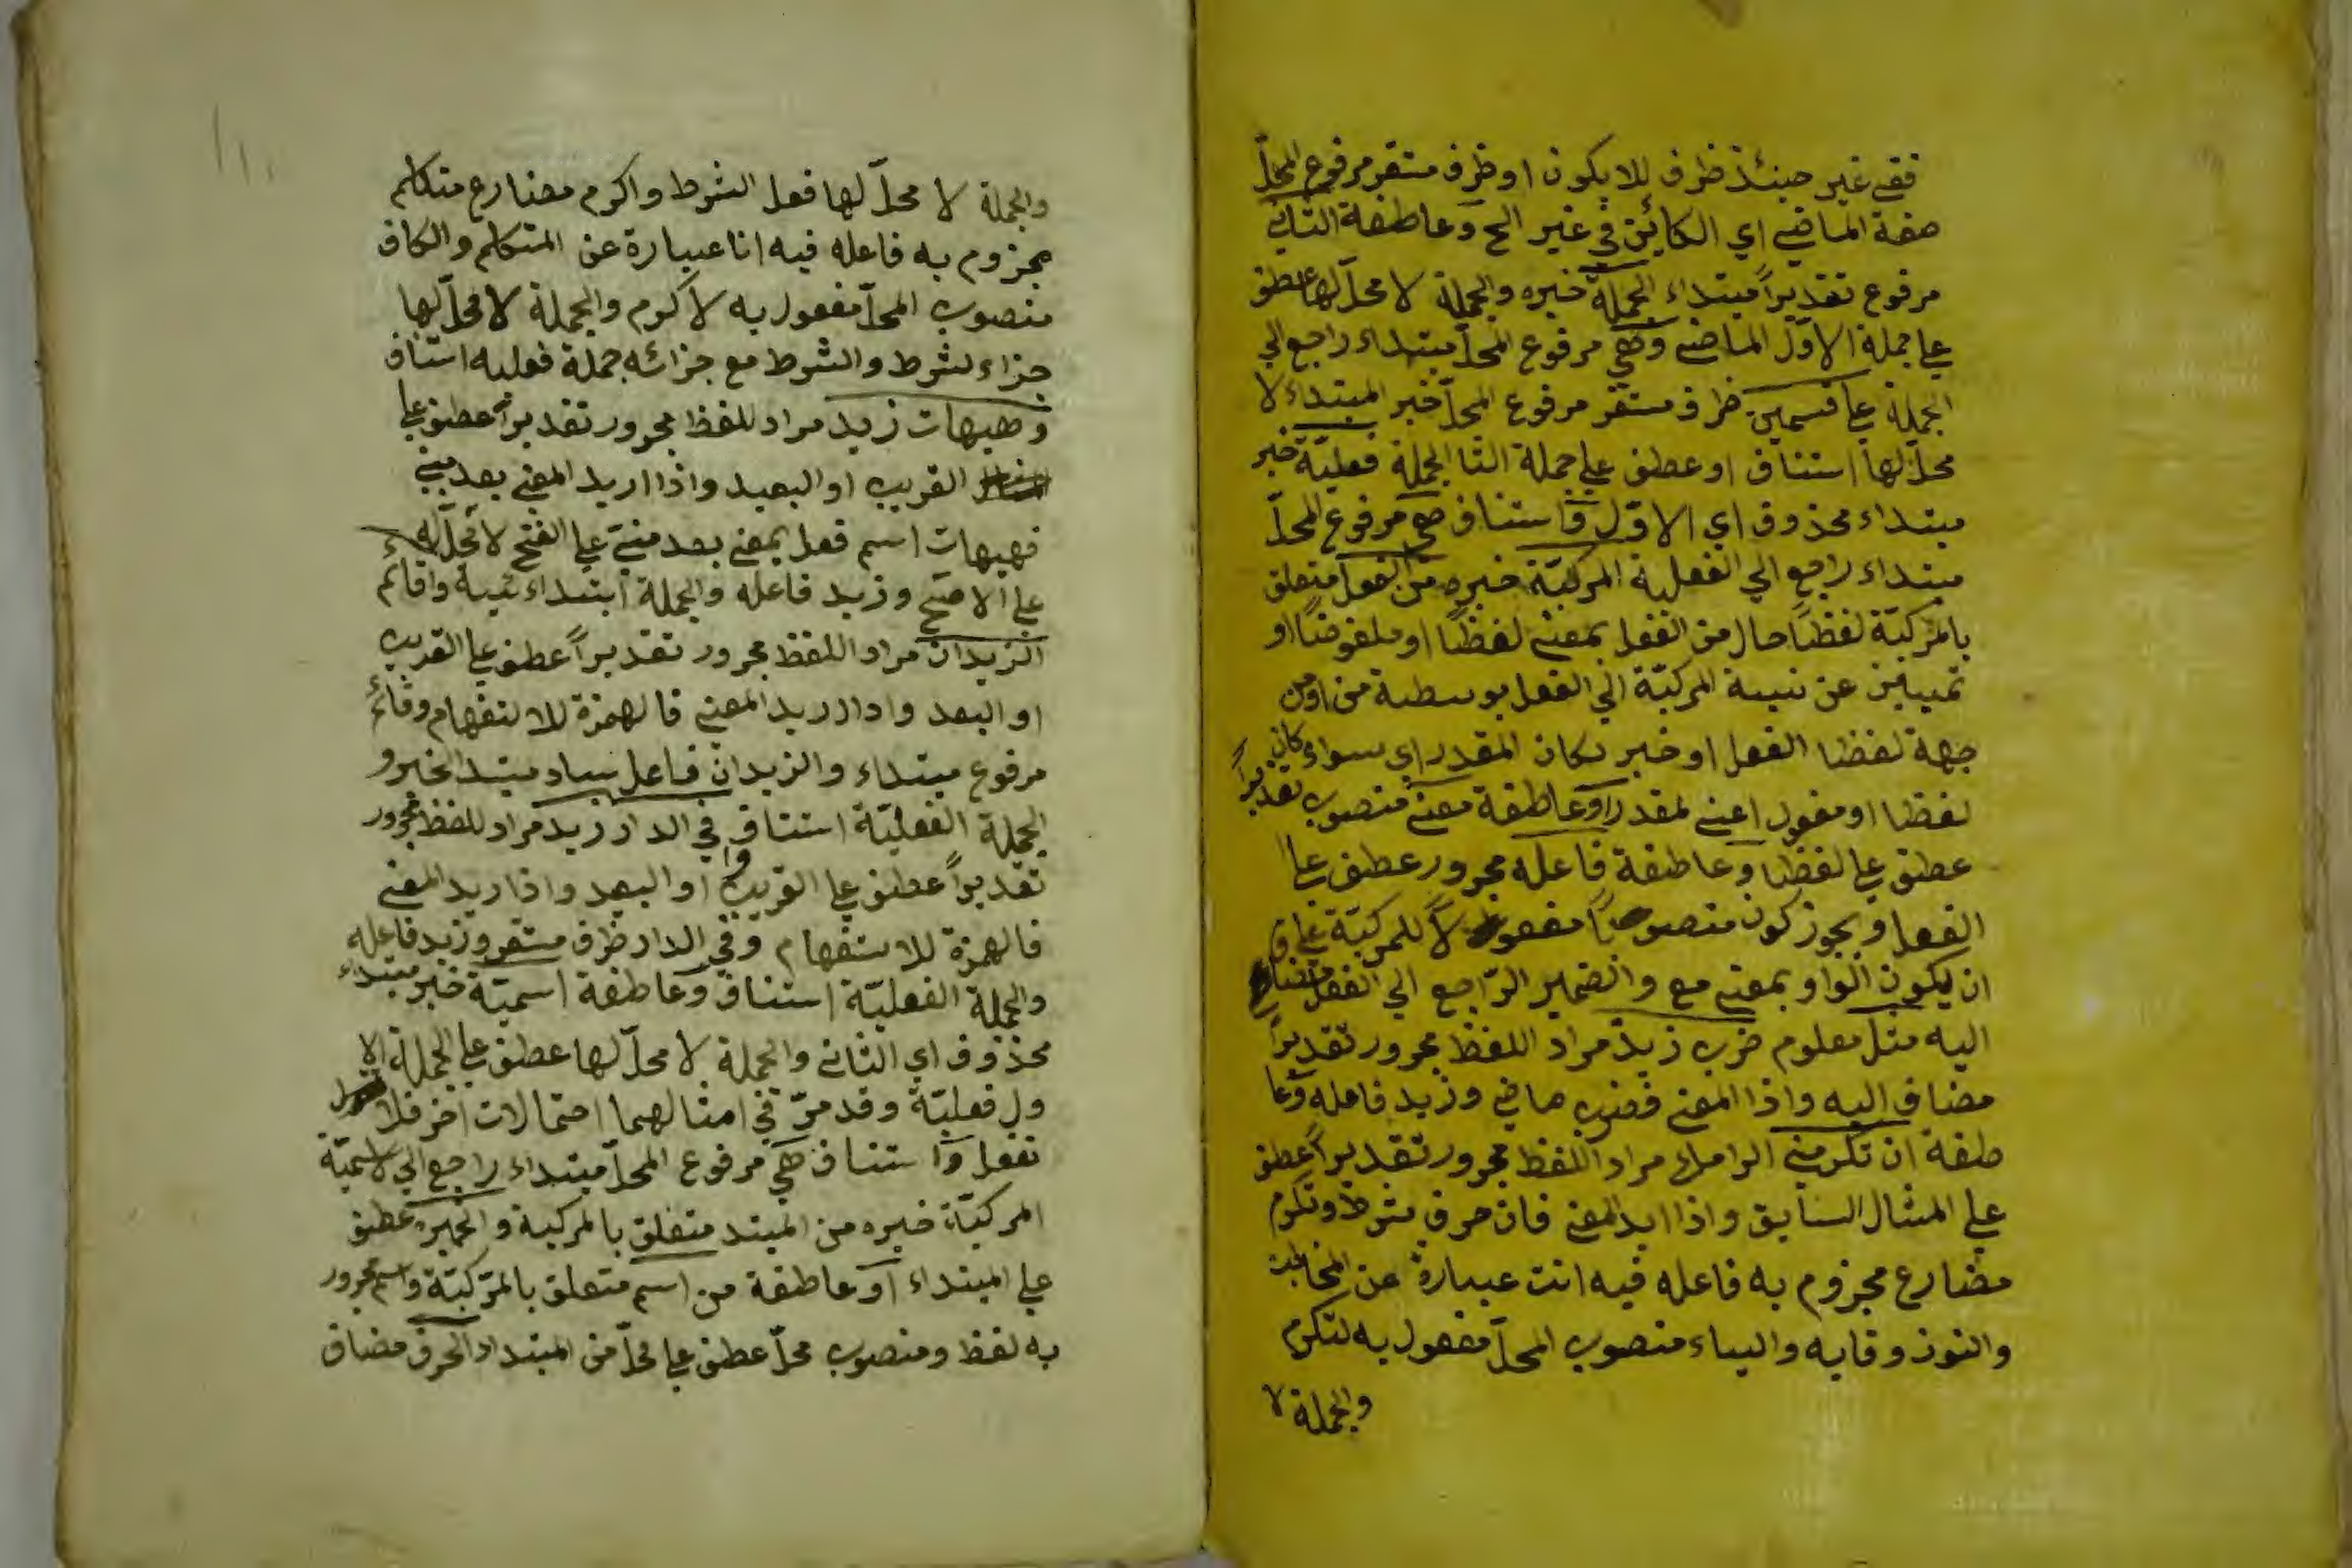 ففي غير حينئذ ظرف للا يكون او ظرف مستقر مرفوع المحلّ
صفة الماضي اي الكائن في غير الخ وعاطفة الثاني
مرفوع تقديراً مبتداء الجملة خبره والجملة لا محلّ لها عطف
علي جملة الاوّل الماضي وهي مرفوع المحلّ مبتداء راجع الي
الجملة علي قسمين ظرف مستقر مرفوع المحلّ خبر المبتداء لا
محلّ لها استناف او عطف علي جملة الثا الجملة فعليّة خبر
مبتداء محذوف اي الاوّل وَاستناف هي مرفوع المحلّ
مبتداء راجع الي الفعلية المركبّة خبره من الفعل متعلق
بالمركبّة لفظاً حال من الفعل بمعني لفظاً او ملفوظاً او
تمييز عن نسبة المركبّة الي الفعل بوسطة من او من
جهة لفظا الفعل او خبر لكان المقدر اي سواء كان
لفظا او مفعول اعني لمقدر اَوعاطفة معنيً منصوب تقديراً
عطف علي لفظا وعاطفة فاعله مجرور عطف علي
الفعل ويجوز كون منصوباً مفعولاً للمركبّة علي
ان يكون الواو بمعني مع والضمير الرّاجع الي الفعل مضاف
اليه مثل معلوم ضرب زيد مراد اللفظ مجرور تقديراً
مضاف اليه واذا المعني فضرب ماضي وزيد فاعله وَعا
طفة ان تكرمني اكرمك مراد اللفظ مجرور تقديراً عطف
علي المثال السابق واذا اريد المعني فان حرف شرط وتكرم
مضارع مجزوم به فاعله فيه انت عبارة عن المخاطب
والنون وقايه والياء منصوب المحلّ مفعول به لتكرم
والجملة لا
والجملة لا محلّ لها فعل الشرط واكرم مضارع متكلم
مجزوم به فاعله فيه انا عبارة عن المتكلم والكاف
منصوب المحلّ مفعول به لاكرم والجملة لا محلّ لها
جزاء لشرط والشرط مع جزائه جملة فعليه استناف
وهيهات زيد مراد للفظ مجرور تقديراً عطف علي
القريب او البعيد واذا اريد المعني بعد مبني
فهيهات اسم فعل بمعني بعد مبنيّ علي الفتح لا محلّ له
علي الاصح وزيد فاعله والجملة ابتداء ئيه واقائم
الزيدان مراد اللفظ مجرور تقديراً عطف علي القريب
او البعد واذا اريد المعني فالهمزة للاستفهام وقائم
مرفوع مبتداء والزيدان فاعل ساد مسد الخبر و
الجملة الفعليّة استناف وا في الدار زيد مراد للفظ مجرور
تقديراً عطف علي القريب او البعد واذا اريد المعني
فالهمزة للاستفهام وفي الدار ظرف مستقر وزيد فاعله
والجملة الفعليّة استناف وَعاطفة اسميّة خبر مبتداء
محذوف اي الثاني والجملة لا محلّ لها عطف علي الجملة الا
ول فعليّة وقد مرّ في امثالهما احتمالات اخر فلا
تغفل وَاستناف هي مرفوع المحلّ مبتداء راجع الي لاسميّة
المركبّة خبره من المبتد متعلق بالمركبة والخبر عطف
علي المبتداء اَوعاطفة من اسم متعلق بالمركبّة واسم مجرور
به لفظ ومنصوب محلّ عطف علي محلّ من المبتداء الحرف مضاف